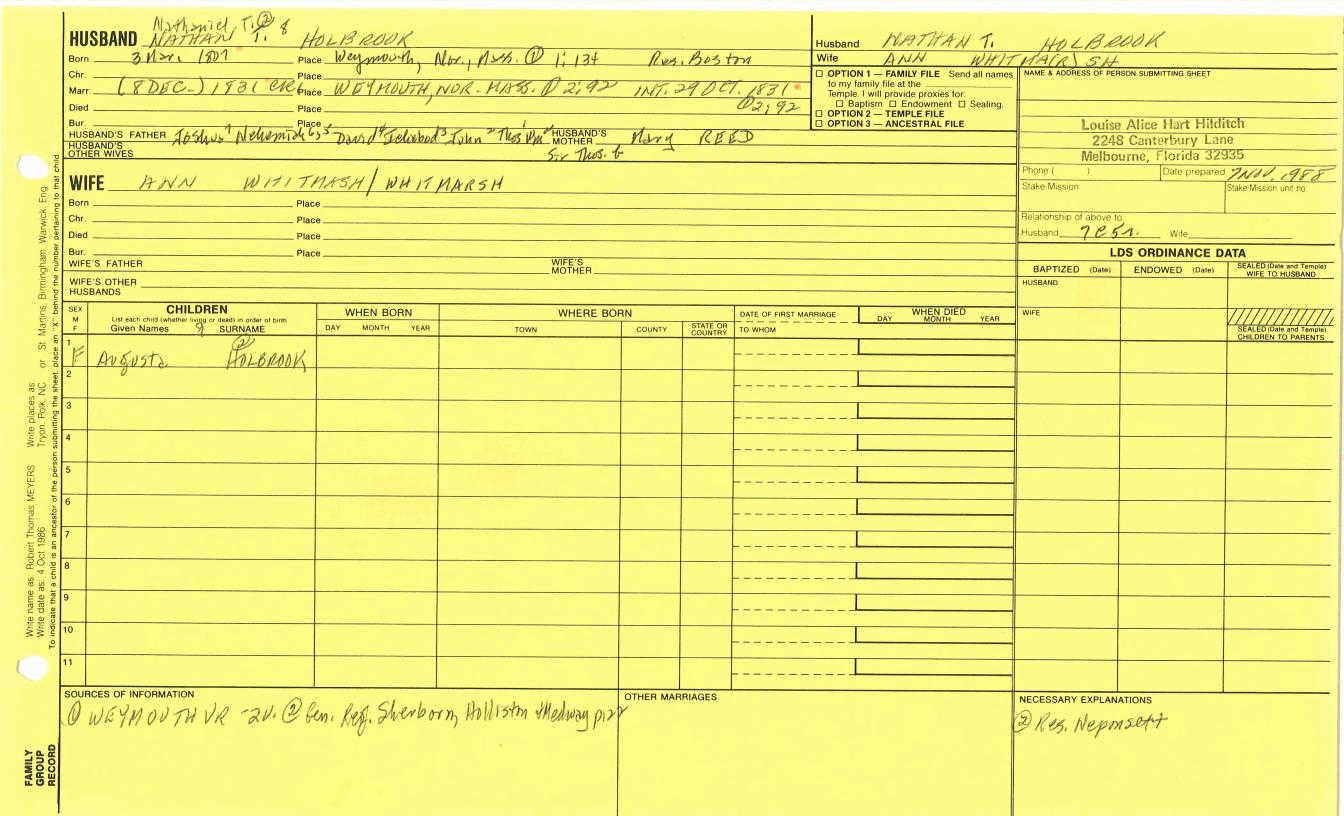 Nathaniel T. ② 8
HUSBAND NATHAN T. HOLBROOK
Born 3 Mar. 1807 Place Weymouth, Nor., Mass. ① 1; 134 Res. Boston
Chr. Place
Marr. (8 DEC.) 1831 CR6 Place WEYMOUTH, NOR. MASS. ① 2; 92 INT. 29 OCT. 1831
Died Place ① 2; 92
Bur. Place
HUSBAND'S FATHER Joshua 7 Nehemiah 6 David 4 Ichabod 3 John 2 Thos 1 HUSBAND'S MOTHER Mary REED
HUSBAND'S OTHER WIVES Sr Thos. 6
WIFE ANN WHITMASH / WHITMARSH
Born Place
Chr. Place
Died Place
Bur. Place
WIFE'S FATHER WIFE'S MOTHER
WIFE'S OTHER HUSBANDS
Husband NATHAN T. HOLBROOK
Wife ANN WHITMA(R)SH
☐ OPTION 1 — FAMILY FILE Send all names
to my family file at the
Temple. I will provide proxies for:
☐ Baptism ☐ Endowment ☐ Sealing.
☐ OPTION 2 — TEMPLE FILE
☐ OPTION 3 — ANCESTRAL FILE
NAME & ADDRESS OF PERSON SUBMITTING SHEET
Louise Alice Hart Hilditch
2248 Canterbury Lane
Melbourne, Florida 32935
Phone ( ) Date prepared 7 NOV. 1988
Stake/Mission Stake/Mission unit no.
Relationship of above to
Husband 7C5r. Wife
LDS ORDINANCE DATA
BAPTIZED (Date) ENDOWED (Date) SEALED (Date and Temple) WIFE TO HUSBAND
HUSBAND
WIFE
SEALED (Date and Temple) CHILDREN TO PARENTS
SEX M F
CHILDREN
List each child (whether living or dead) in order of birth
Given Names 9 SURNAME
WHEN BORN
DAY MONTH YEAR
WHERE BORN
TOWN COUNTY STATE OR COUNTRY
DATE OF FIRST MARRIAGE
TO WHOM
WHEN DIED
DAY MONTH YEAR
1 F Augusta ② HOLBROOK
2
3
4
5
6
7
8
9
10
11
SOURCES OF INFORMATION
① WEYMOUTH VR -2V. ② Gen. Reg. Sherborn, Holliston & Medway p127
OTHER MARRIAGES
NECESSARY EXPLANATIONS
② Res. Neponsett
Write name as: Robert Thomas MEYERS Write places as: Tryon, Polk, NC or St Martins, Birmingham, Warwick, Eng
Write date as: 4 Oct 1986
To indicate that a child is an ancestor of the person submitting the sheet, place an "X" behind the number pertaining to that child
FAMILY
GROUP
RECORD